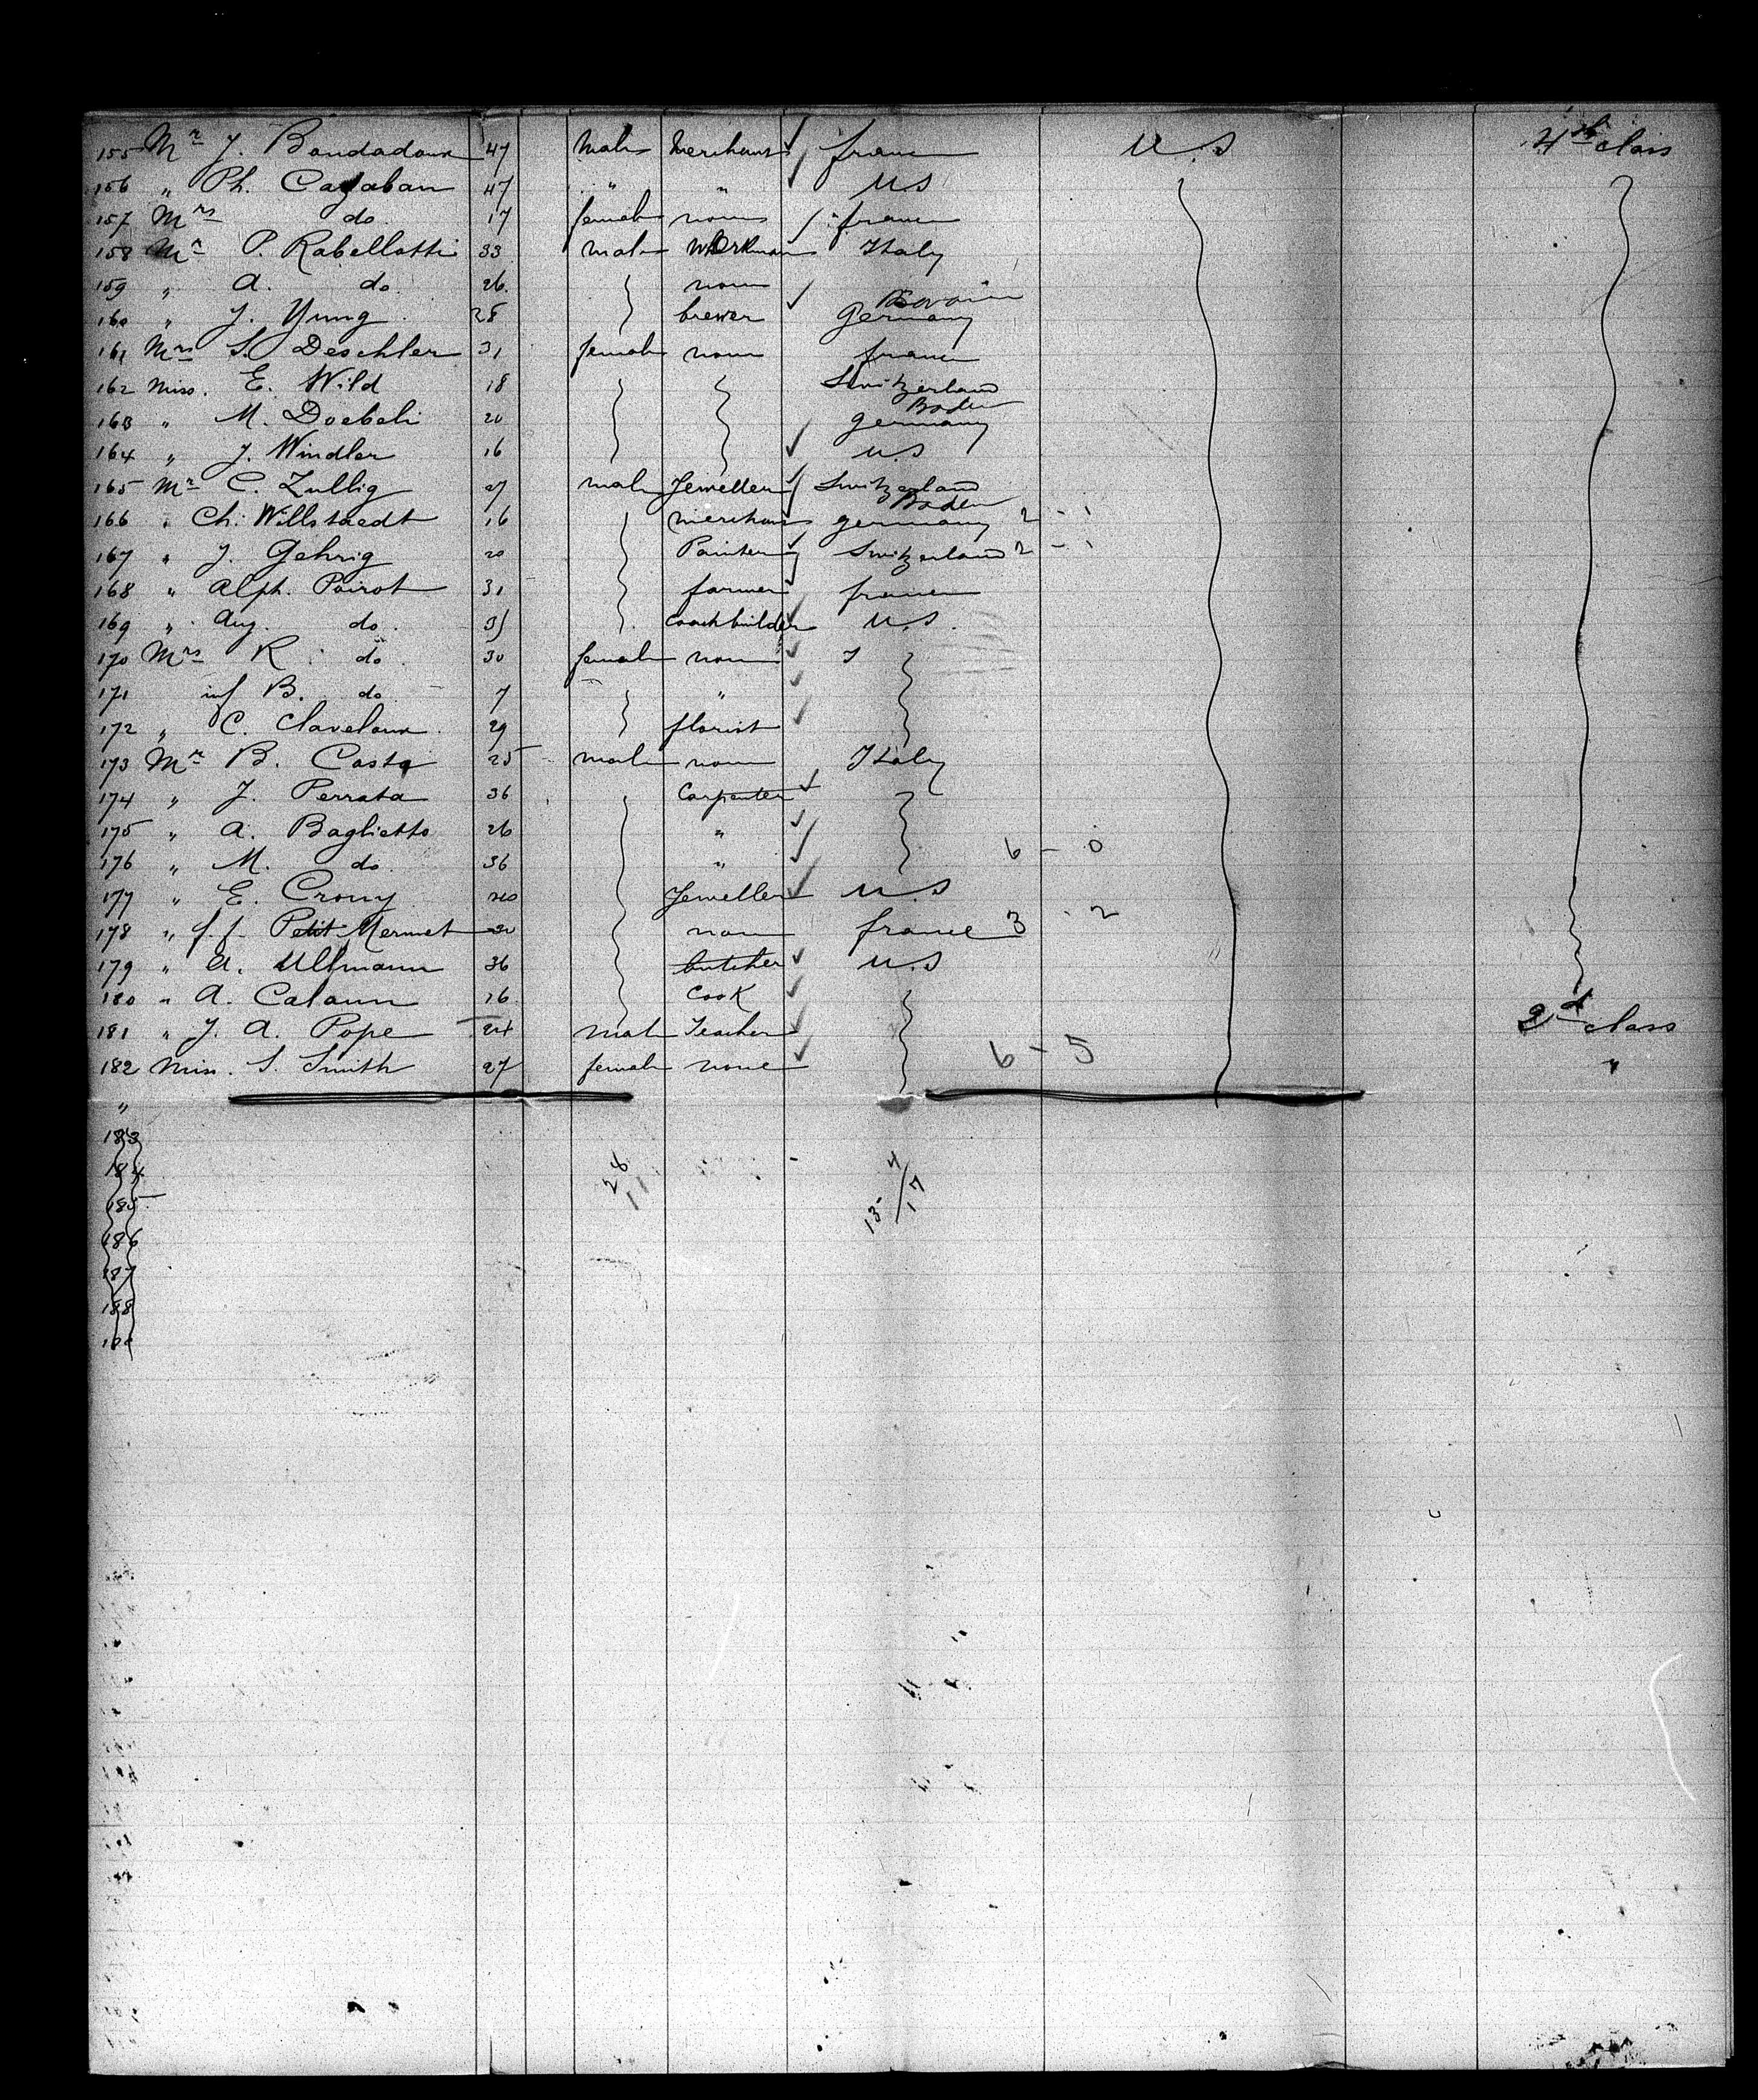 155 Mr J. Bondadoux 47 Male Merchant france U.S 4th class
156 " Ph. Cazaban 47 " " U.S
157 Mrs do. 17 female none france
158 Mr P. Rabellotti 33 male Workman Italy
159 " A. do. 26. none
160 " J. Yung 28 brewer Germany Bavaria
161 Mrs S. Deschler 31 female none france
162 Miss. E. Wild 18 Switzerland
163 " M. Doebeli 20 germany Baden
164 " J. Windler 16 U.S
165 Mr C. Zullig 27 male Jeweller Switzerland
166 " Ch. Willstaedt 16 merchant germany Baden 2 - 1
167 " J. Gehrig 20 Painter Switzerland 2 - 1
168 " Alph. Poirot 31 farmer france
169 " Aug. do. 35 Coachbuilder U.S.
170 Mrs K do. 30 female none
171 inf B. do. 7 "
172 " C. Claveloux 29 florist
173 Mr B. Costa 25 male none Italy
174 " J. Perrata 36 Carpenter
175 " A. Baglietto 26 "
176 " M. do. 36 " 6 - 0
177 " E. Crouy 20 Jeweller U.S
178 " f. f. Petit Mermet 30 none france 3 - 2
179 " A. Ullmann 36 butcher U.S
180 " A. Calaun 16 Cook
181 " J. A. Pope 24 male Teacher 2d class
182 Miss. S. Smith 27 female none 6 - 5 "
"
183
184 28 4
185 11 13 / 17
186
187
188